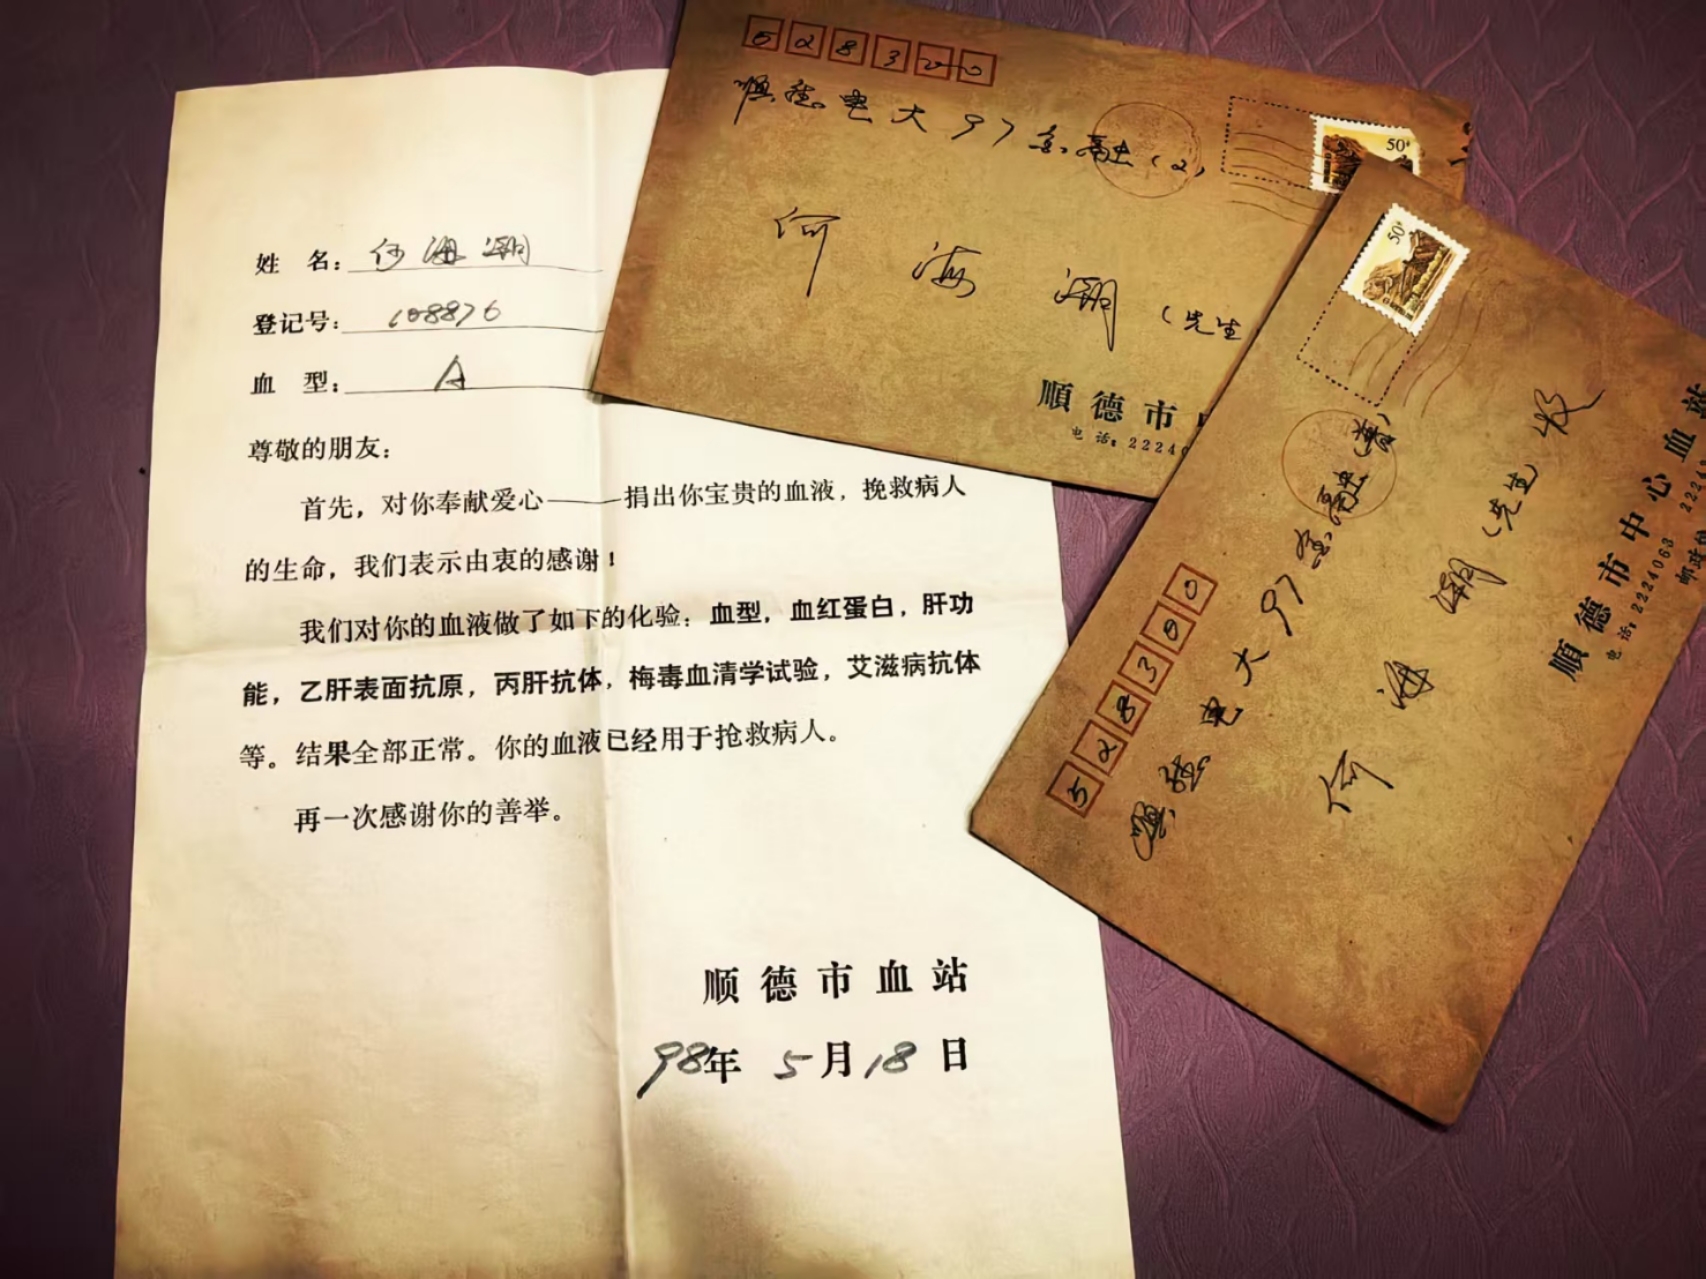 姓 名：何海潮
登记号：108876
血 型：A
尊敬的朋友：
首先，对你奉献爱心———捐出你宝贵的血液，挽救病人
的生命，我们表示由衷的感谢！
我们对你的血液做了如下的化验：血型，血红蛋白，肝功
能，乙肝表面抗原，丙肝抗体，梅毒血清学试验，艾滋病抗体
等。结果全部正常。你的血液已经用于抢救病人。
再一次感谢你的善举。
顺德市血站
98年 5月18日
528300
顺德电大97金融(2)
何海潮（先生
順德市
电话：22240
50
50
528300
顺德电大97金融
何海潮（先生）收
順德市中心血站
电话：2224063 2224
邮政编